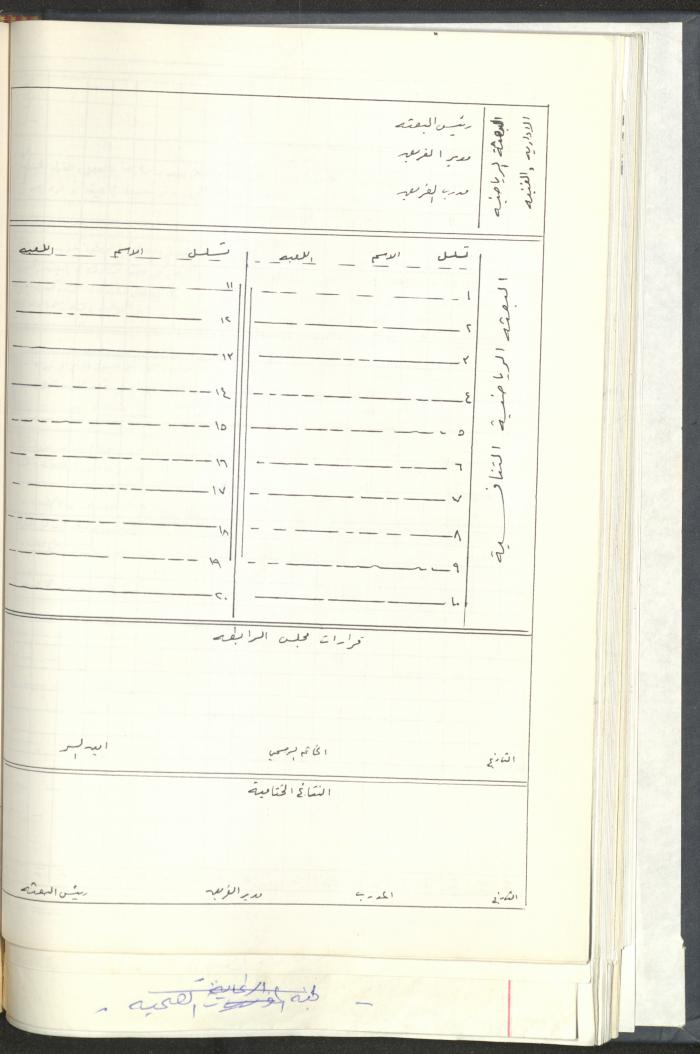 الادارية والفنية
البعثة الرياضية
رئيس البعثه
مدير الفريق
مدرب الفريق
البعثه الرياضية التنافسية
تسلسل الاسم اللعبه
١
٢
٣
٤
٥
٦
٧
٨
٩
١٠
تسلسل الاسم اللعبه
١١
١٢
١٣
١٤
١٥
١٦
١٧
١٨
١٩
٢٠
قرارات مجلس الرابطه
التاريخ الخاتم الرسمي امين السر
النتائج الختامية
التاريخ المدرب مدير الفريق رئيس البعثه
لجنة الصحيه